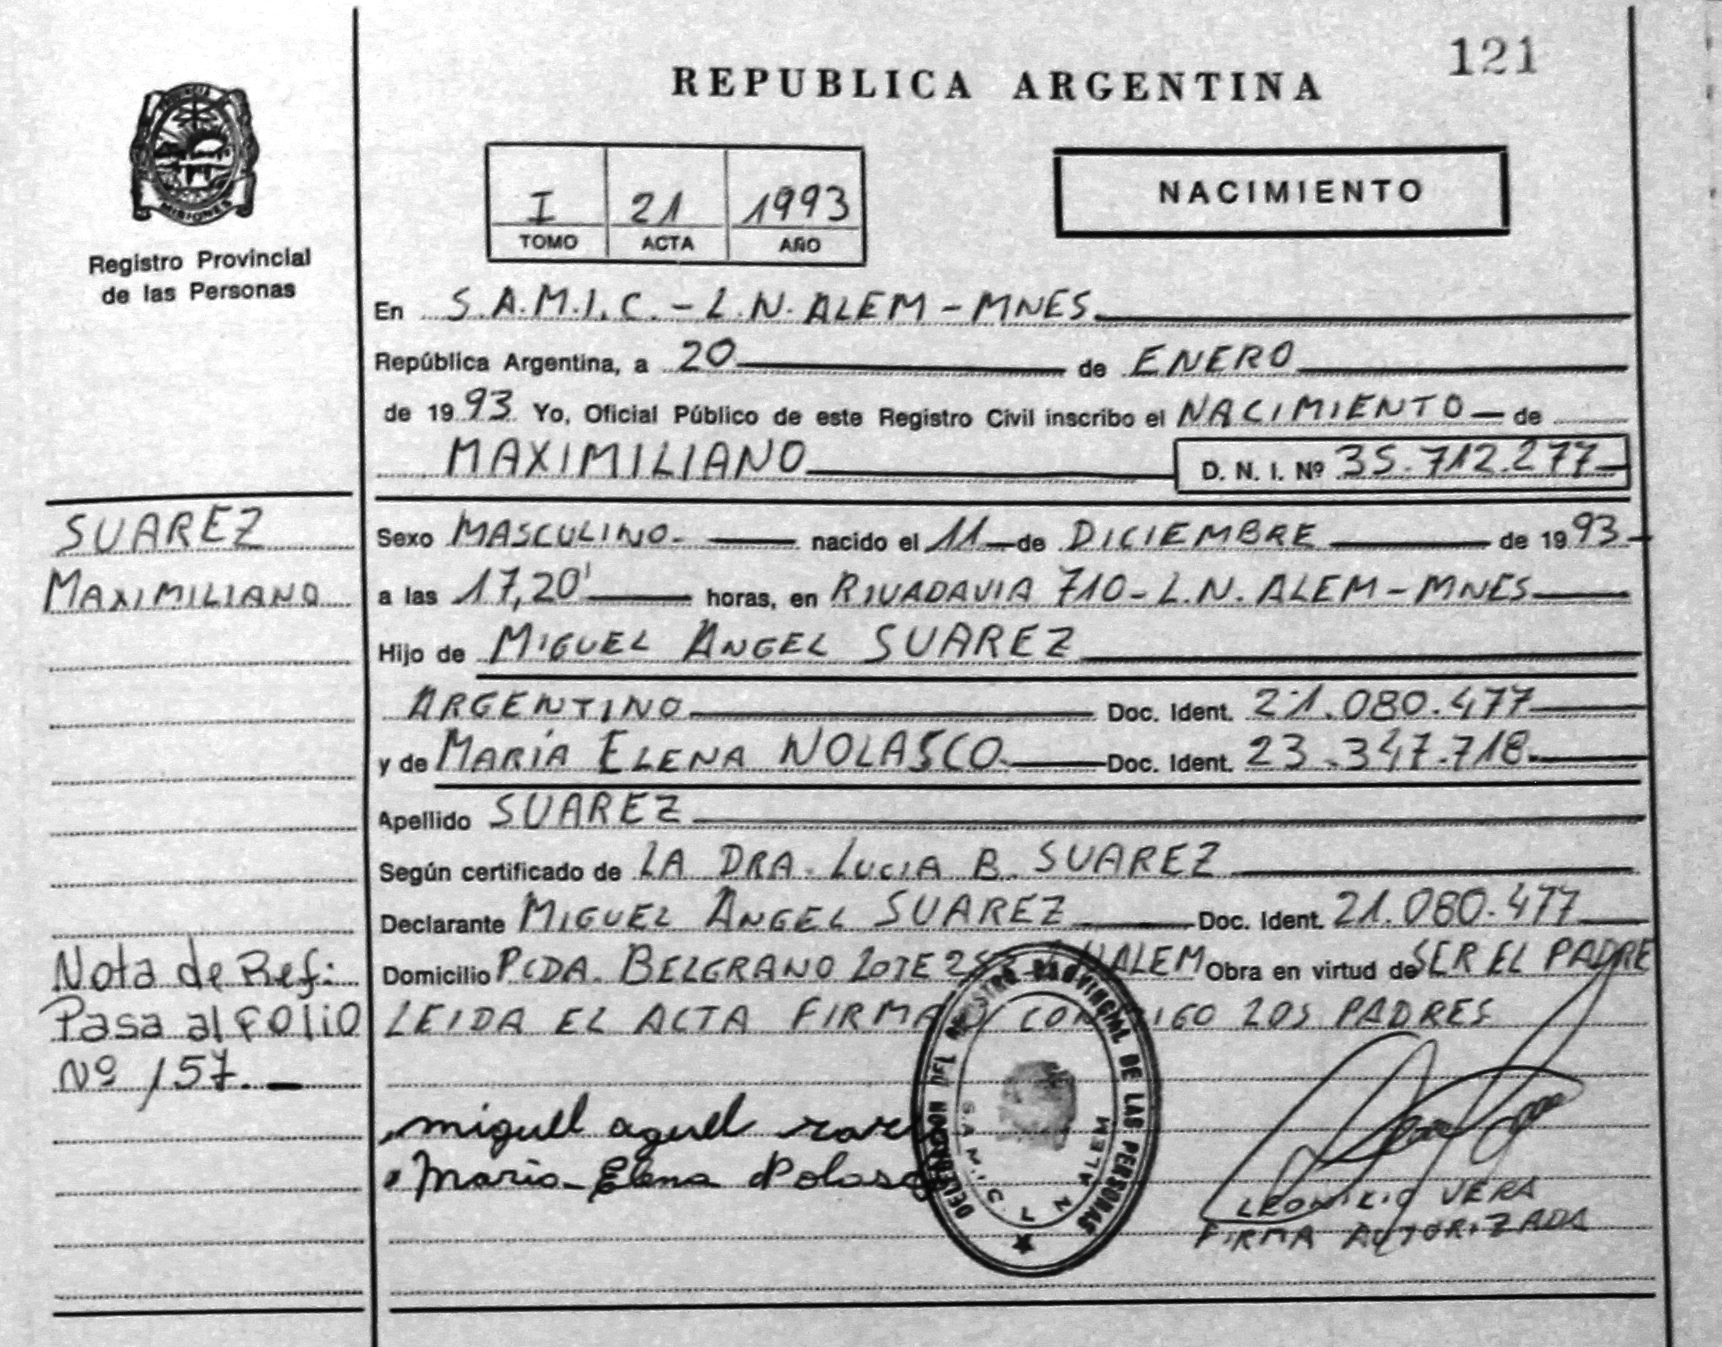 121
REPUBLICA ARGENTINA
MISIONES
Registro Provincial
de las Personas
I 21 1993
TOMO ACTA AÑO
NACIMIENTO
En S.A.M.I.C. - L.N. ALEM - MNES
República Argentina, a 20 de ENERO
de 1993 Yo, Oficial Público de este Registro Civil inscribo el NACIMIENTO de
MAXIMILIANO D. N. I. Nº 35.712.277
SUAREZ
MAXIMILIANO
Sexo MASCULINO nacido el 11 de DICIEMBRE de 1993
a las 17,20' horas, en RIVADAVIA 710 - L.N. ALEM - MNES
Hijo de MIGUEL ANGEL SUAREZ
ARGENTINO Doc. Ident. 21.080.477
y de MARÍA ELENA NOLASCO Doc. Ident. 23.347.718
Apellido SUAREZ
Según certificado de LA DRA. LUCIA B. SUAREZ
Declarante MIGUEL ANGEL SUAREZ Doc. Ident. 21.080.477
Domicilio PCDA. BELGRANO LOTE ALEM Obra en virtud de SER EL PADRE
LEIDA EL ACTA FIRMAN CONMIGO LOS PADRES
Nota de Ref:
Pasa al FOLIO
Nº 157.
miguel aguel
Maria Elena Nolasco
DEL REGISTRO PROVINCIAL DE LAS PERSONAS
S.A.M.I.C. L N ALEM
VERA
FIRMA AUTORIZADA